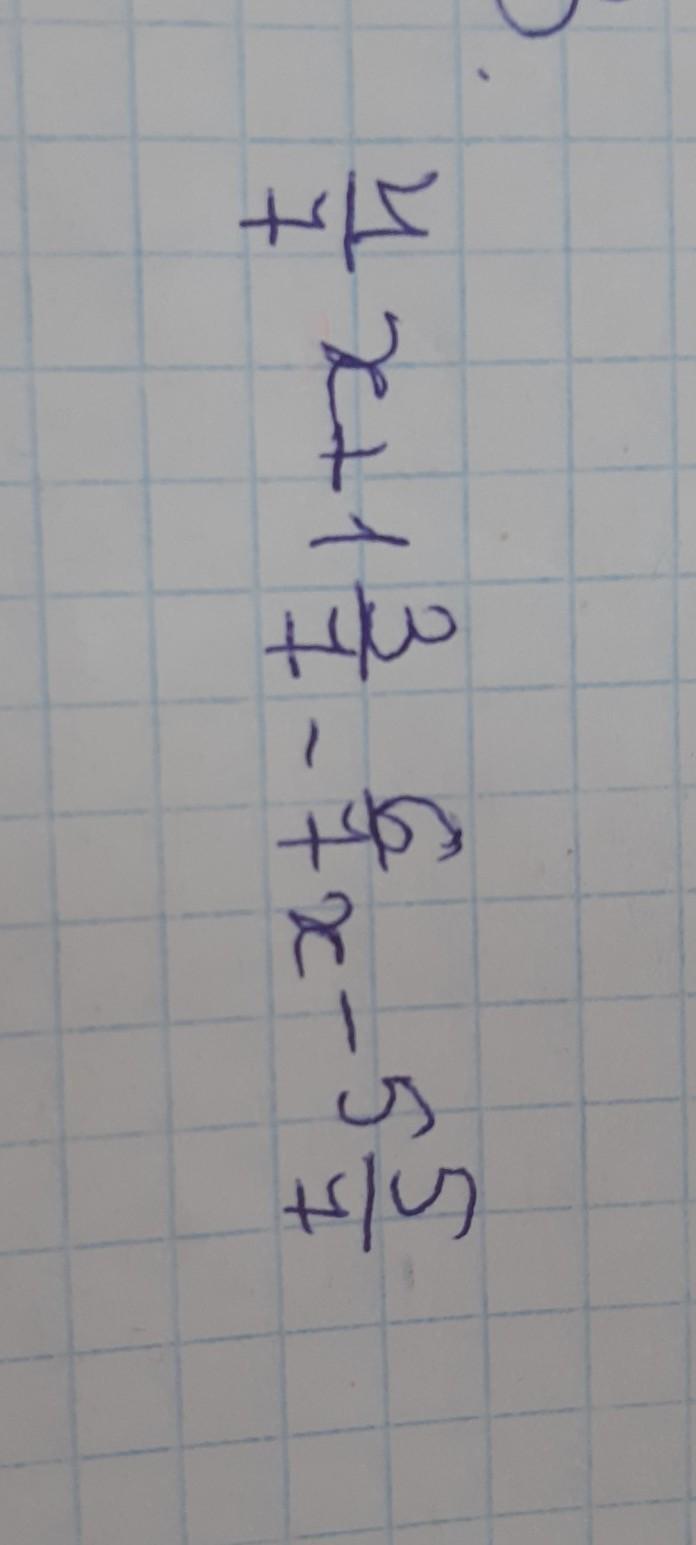 4/7 x + 1 3/7 - 6/7 x - 5 5/7